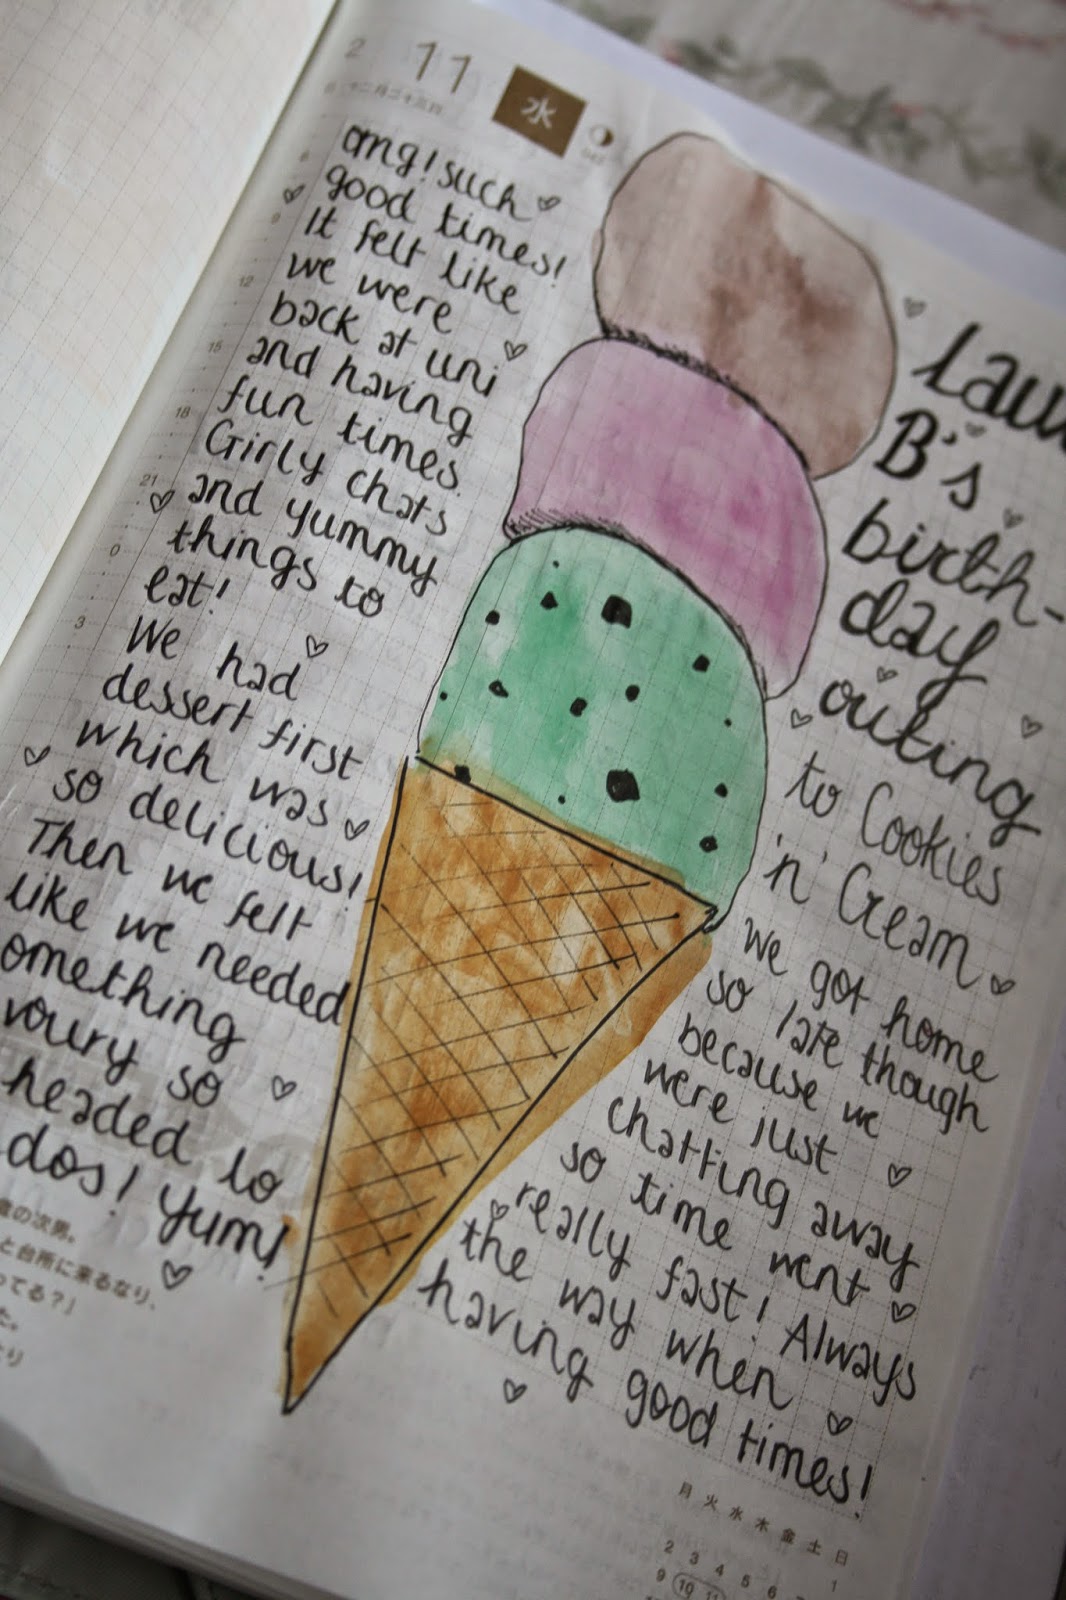 2 11 水
十二月二十三日
042
omg! such
good times!
It felt like
we were
back at uni
and having
fun times.
Girly chats
and yummy
things to
eat!
We had
dessert first
which was
so delicious!
Then we felt
like we needed
omething
voury so
headed to
dos! Yum!
6
9
12
15
18
21
0
3
B's
birth-
day
outing
to Cookies
'n' Cream
We got home
so late though
because we
were just
chatting away
so time went
really fast! Always
the way when
having good times!
の次男。
と台所に来るなり、
ってる?」
た。
月 火 水 木 金 土 日
1
2 3 4 5 6
9 10 11